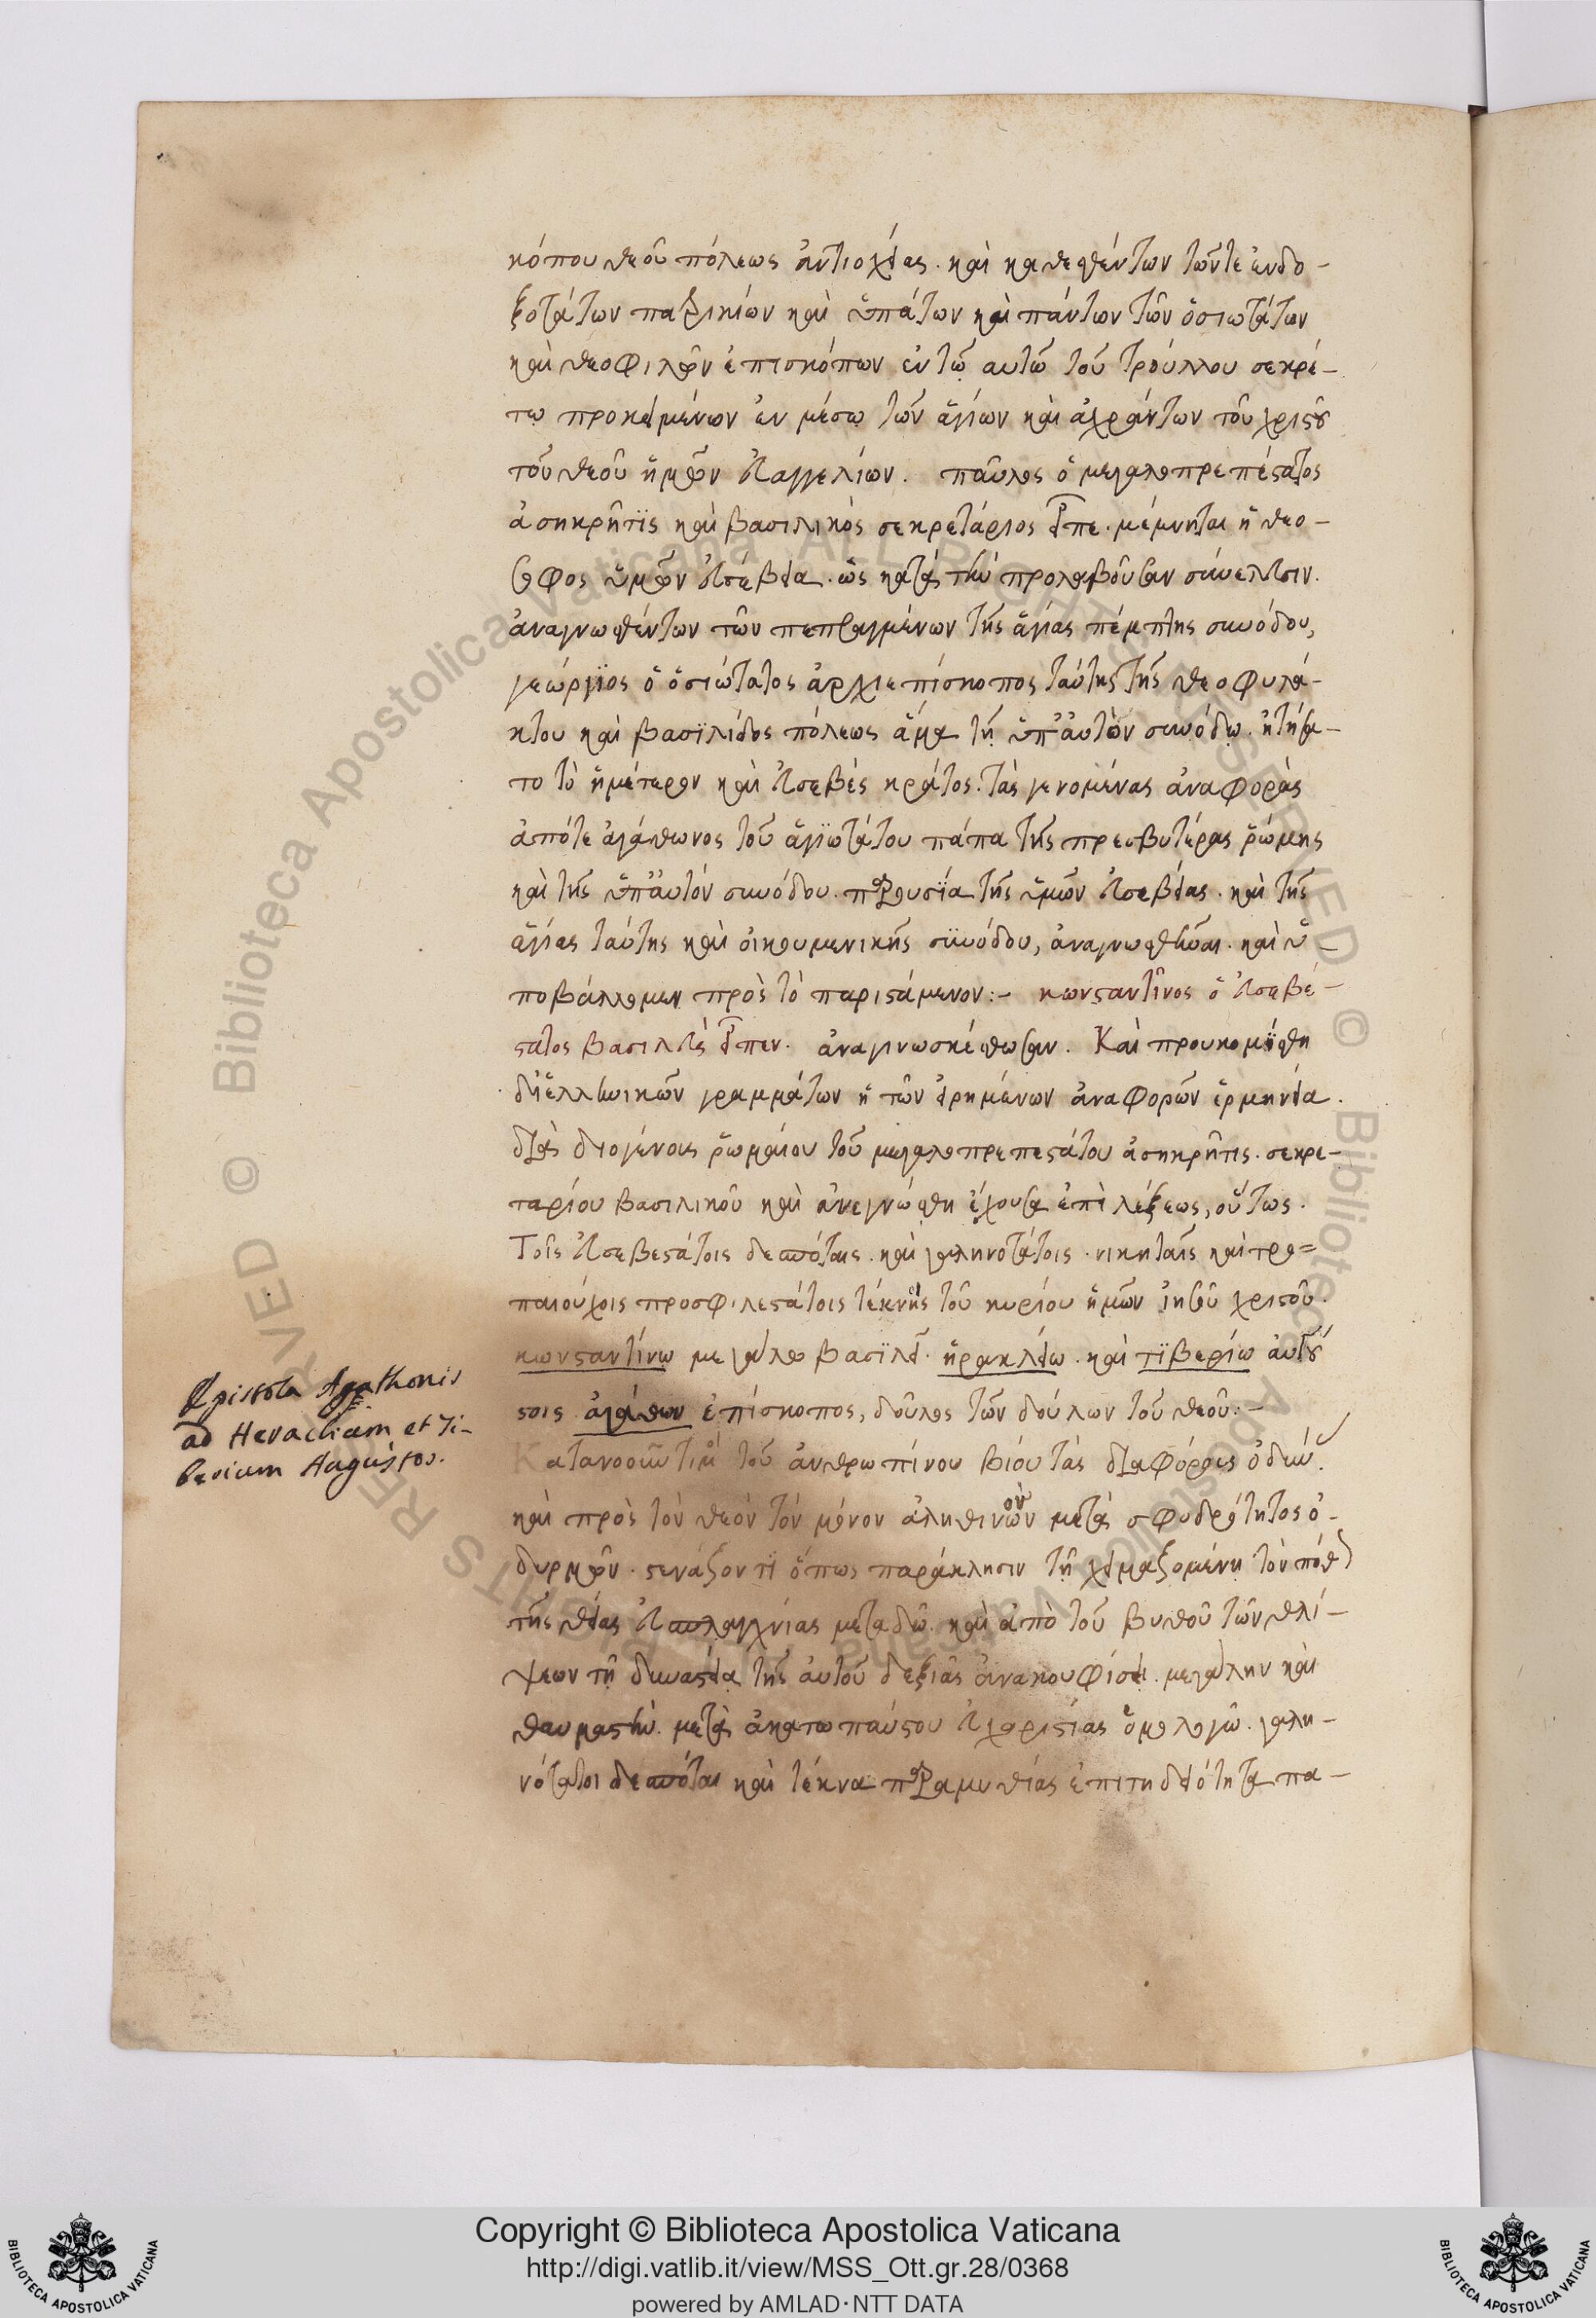 κόπου θεοῦ πόλεως ἀντιοχείας. καὶ καθεσθέντων τῶντε ἐνδο-
ξοτάτων πατρικίων καὶ ὑπάτων καὶ πάντων τῶν ὁσιωτάτων
καὶ θεοφιλῶν ἐπισκόπων ἐν τῷ αυτῶ τοῦ τρούλλου σεκρέ-
τῳ προκειμένων ἐν μέσῳ τῶν ἁγίων καὶ ἀχράντων τοῦ χριστοῦ
τοῦ θεοῦ ἡμῶν εὐαγγελίων. παῦλος ὁ μεγαλοπρεπέστατος
ἀσηκρῆτϊς καὶ βασιλικὸς σεκρετάριος εἶπε. μέμνηται ἡ θεό-
σοφος ὑμῶν εὐσέβεια. ὡς κατὰ τὴν προλαβοῦσαν συνέλευσιν.
ἀναγνωσθέντων τῶν πεπραγμένων τῆς ἁγίας πέμπτης συνόδου,
γεώργϊος ὁ ὁσιώτατος ἀρχιεπίσκοπος ταύτης τῆς θεοφυλά-
κτου καὶ βασϊλίδος πόλεως ἅμα τῇ ὑπ' ἀυτὸν συνόδῳ. ἠτήσα-
το τὸ ἡμέτερον καὶ εὐσεβὲς κράτος. τὰς γενομένας ἀναφορὰς
ἀπότε ἀγάθωνος τοῦ ἁγϊωτάτου πάπα τῆς πρεσβυτέρας ῥώμης
καὶ τῆς ὑπ' ἀυτόν συνόδου. παρουσία τῆς ὑμῶν εὐσεβείας. καὶ τῆς
ἁγίας ταύτης καὶ οἰκουμενικῆς συνόδου, ἀναγνωσθῆναι. καὶ ὑ-
ποβάλλομεν πρὸς τὸ παριστάμενον:- κωνσταντῖνος ὁ εὐσεβέ-
στατος βασιλεὺς εἶπεν. ἀναγινωσκέσθωσαν. Καὶ προυκομίσθη
δι' ἑλληνικῶν γραμμάτων ἡ τῶν εἰρημένων ἀναφορῶν ἑρμηνεία.
διὰ διογένους ῥωμαίου τοῦ μεγαλοπρεπεστάτου ἀσηκρῆτις. σεκρε-
ταρίου βασιλικοῦ καὶ ἀνεγνώσθη ἔχουσα ἐπὶ λέξεως, οὕτως.
Τοῖς εὐσεβεστάτοις δεσπόταις. καὶ γαληνοτάτοις. νικηταῖς καὶ τρο=
παιούχοις προσφιλεστάτοις τέκνοις τοῦ κυρίου ἡμῶν ἰησοῦ χριστοῦ.
κωνσταντίνω μεγάλο βασϊλεῖ. ἡρακλείω. καὶ τϊβερίω ἀυγού
στοις ἀγάθων ἐπίσκοπος, δοῦλος τῶν δούλων τοῦ θεοῦ:-
Κατανοοῦντί μοι τοῦ ἀνθρωπίνου βίου τὰς διαφόρους ὀδύν.
καὶ πρὸς τὸν θεὸν τὸν μόνον ἀληθινὸν μετὰ σφοδρότητος ὀ-
δυρμῶν. στενάζοντϊ ὅπως παράκλησιν τῇ χειμαζομένῃ
τῆς θείας εὐσπλαγχνίας μεταδῶ. καὶ ἀπὸ τοῦ βυθοῦ τῶν θλί-
ψεων τῇ δυναστεία τῆς ἀυτοῦ δεξιᾶς ἀνακουφίσει. μεγάλην καὶ
θαυμαστὴν. μετὰ ἀκαταπαύστου εὐχαριστίας ὁμολογῶ. γαλη-
νότατοι δεσπόται καὶ τέκνα παραμυθίας ἐπιτηδειότητα πα-
Epistola Agathonis
ad Heraclium et Ti-
berium Augustos.
© Biblioteca Apostolica Vaticana ALL RIGHTS RESERVED
Copyright © Biblioteca Apostolica Vaticana
http://digi.vatlib.it/view/MSS_Ott.gr.28/0368
powered by AMLAD·NTT DATA
BIBLIOTECA APOSTOLICA VATICANA
BIBLIOTECA APOSTOLICA VATICANA